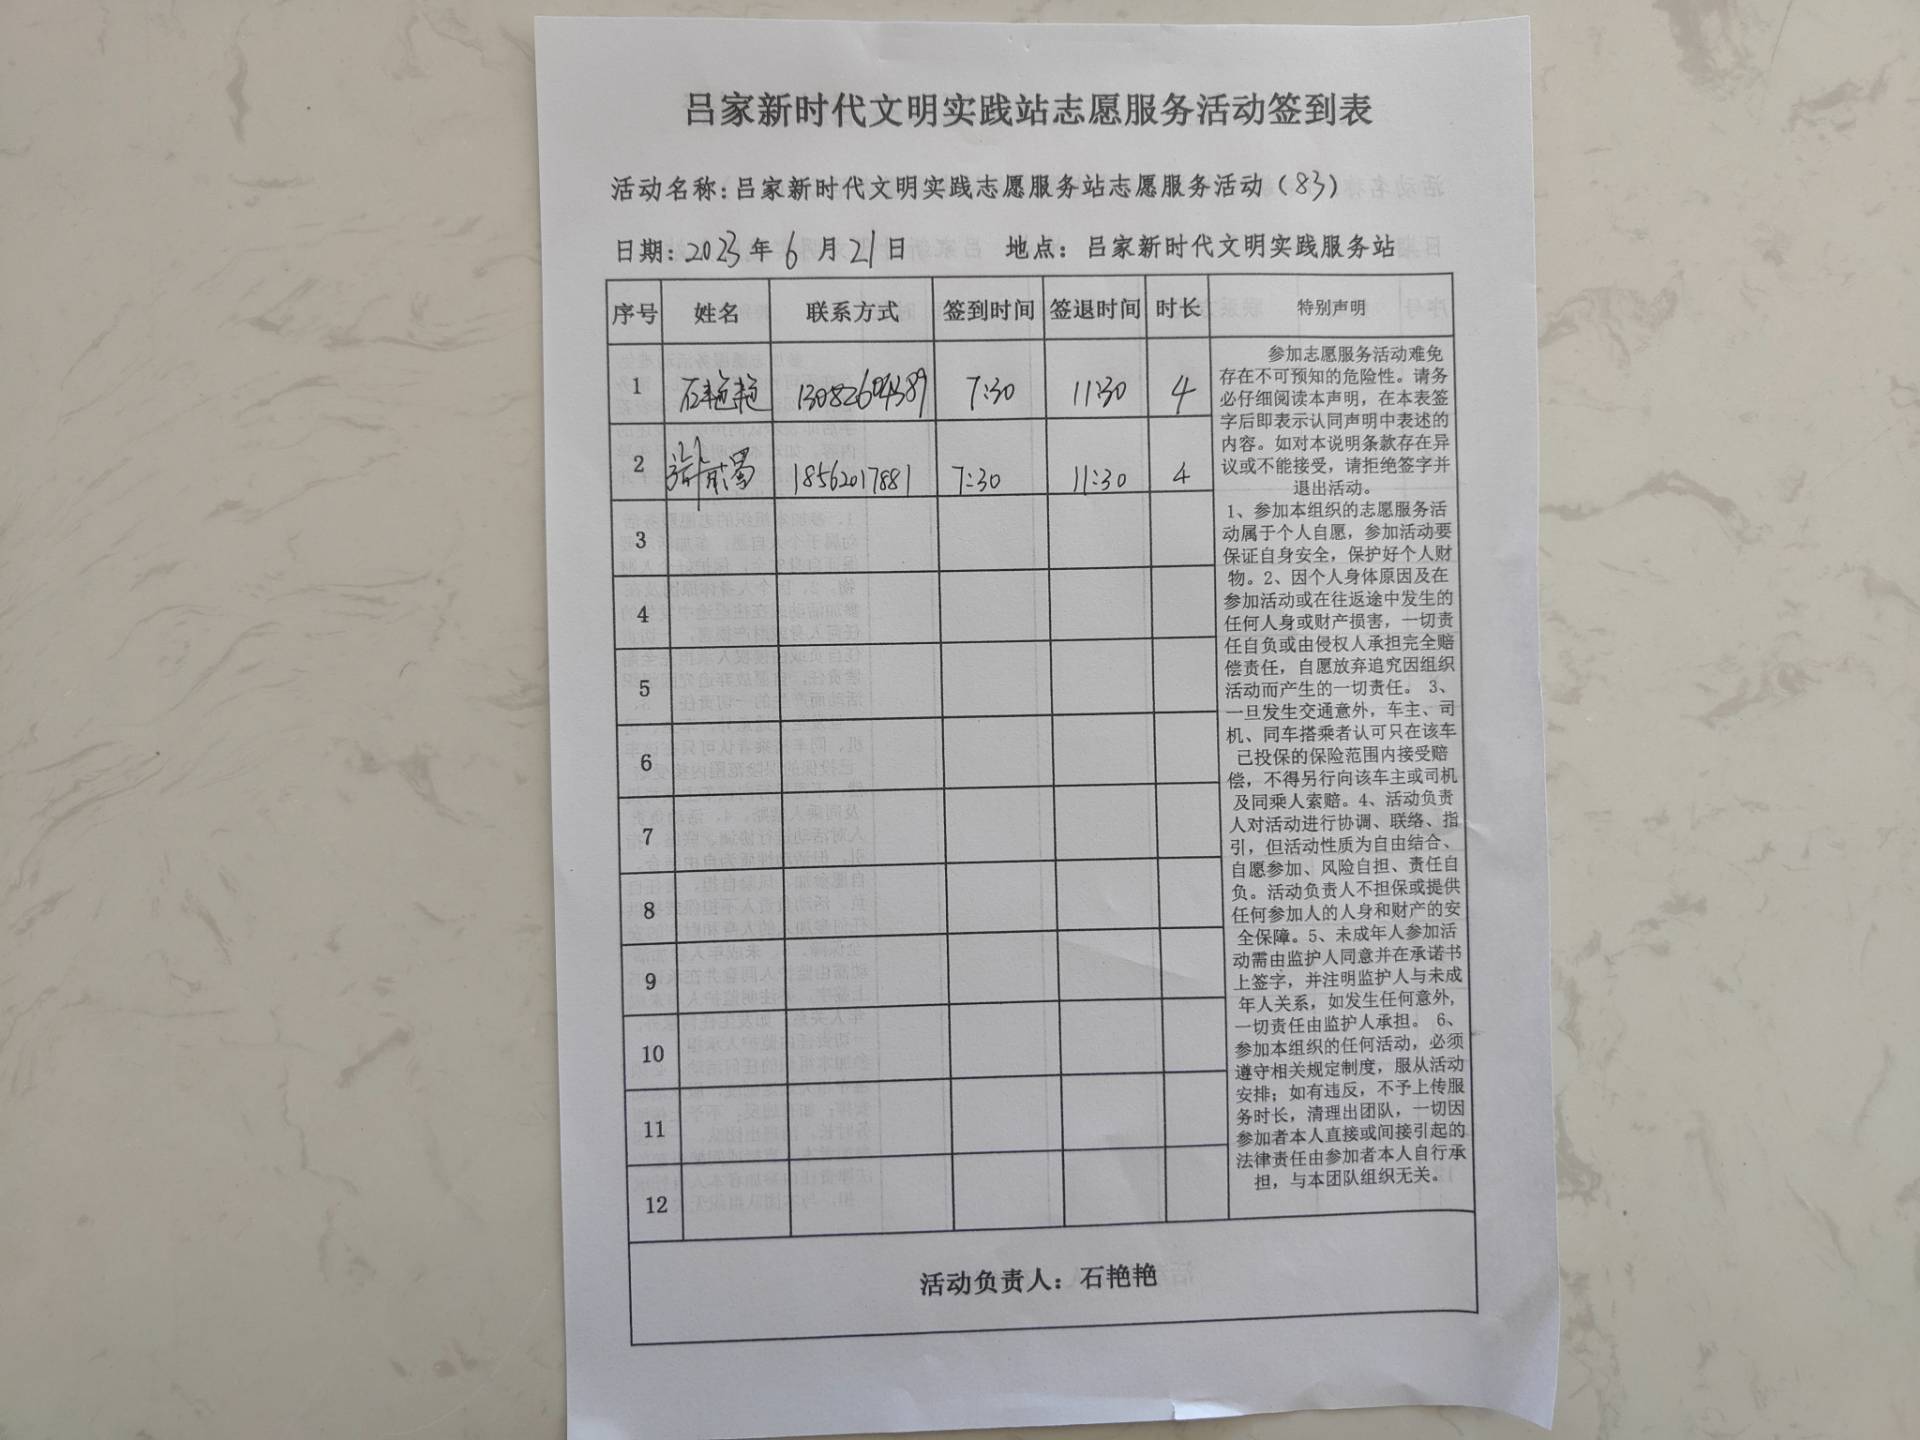 吕家新时代文明实践站志愿服务活动签到表
活动名称:吕家新时代文明实践志愿服务站志愿服务活动（83）
日期:2023年6月21日 地点：吕家新时代文明实践服务站
序号 姓名 联系方式 签到时间 签退时间 时长 特别声明
1 石艳艳 13082604389 7:30 11:30 4
2 18562017881 7:30 11:30 4
3
4
5
6
7
8
9
10
11
12
参加志愿服务活动难免
存在不可预知的危险性。请务
必仔细阅读本声明，在本表签
字后即表示认同声明中表述的
内容。如对本说明条款存在异
议或不能接受，请拒绝签字并
退出活动。
1、参加本组织的志愿服务活
动属于个人自愿，参加活动要
保证自身安全，保护好个人财
物。2、因个人身体原因及在
参加活动或在往返途中发生的
任何人身或财产损害，一切责
任自负或由侵权人承担完全赔
偿责任，自愿放弃追究因组织
活动而产生的一切责任。 3、
一旦发生交通意外，车主、司
机、同车搭乘者认可只在该车
已投保的保险范围内接受赔
偿，不得另行向该车主或司机
及同乘人索赔。4、活动负责
人对活动进行协调、联络、指
引，但活动性质为自由结合、
自愿参加、风险自担、责任自
负。活动负责人不担保或提供
任何参加人的人身和财产的安
全保障。5、未成年人参加活
动需由监护人同意并在承诺书
上签字，并注明监护人与未成
年人关系，如发生任何意外，
一切责任由监护人承担。 6、
参加本组织的任何活动，必须
遵守相关规定制度，服从活动
安排；如有违反，不予上传服
务时长，清理出团队，一切因
参加者本人直接或间接引起的
法律责任由参加者本人自行承
担，与本团队组织无关。
活动负责人：石艳艳